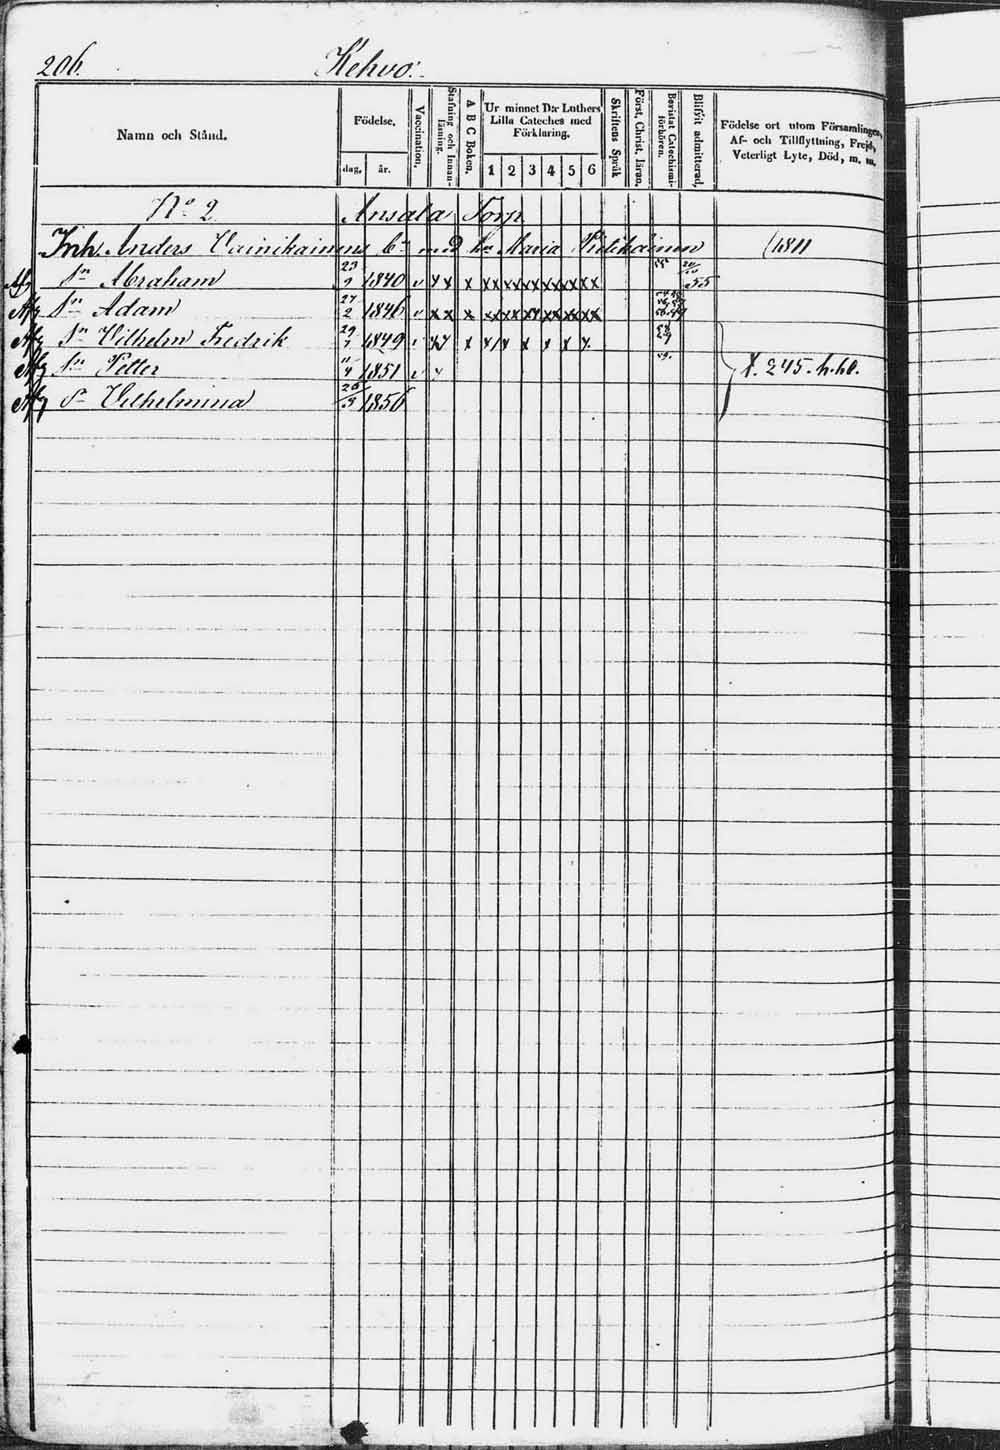 206. Kehvo.
Namn och Stånd. Födelse. Vaccination. Stafning och Innanläsning. A B C Boken. Ur minnet D:r Luthers Lilla Cateches med Förklaring. Skriftens Språk Först. Christ. läran. Bevistat Catechismiförhören. Blifvit admitterad. Födelse ort utom Församlingen, Af- och Tillflyttning, Frejd, Veterligt Lyte, Död, m. m.
dag. år. 1 2 3 4 5 6
No 2 Ansala Torp
Inh. Anders Vainikainens med Maria 1811
Sn Abraham 23 1840 v x x x x x x x x x x x x 55
Sn Adam 27/2 1846 v x x x x x x x x x x x x x x x
Sn Vilhelm Fredrik 29 1849 v x x x x x x x x x
Sn Petter 11/4 1851 v X. 245. h. hl.
Vilhelmina 26 1856